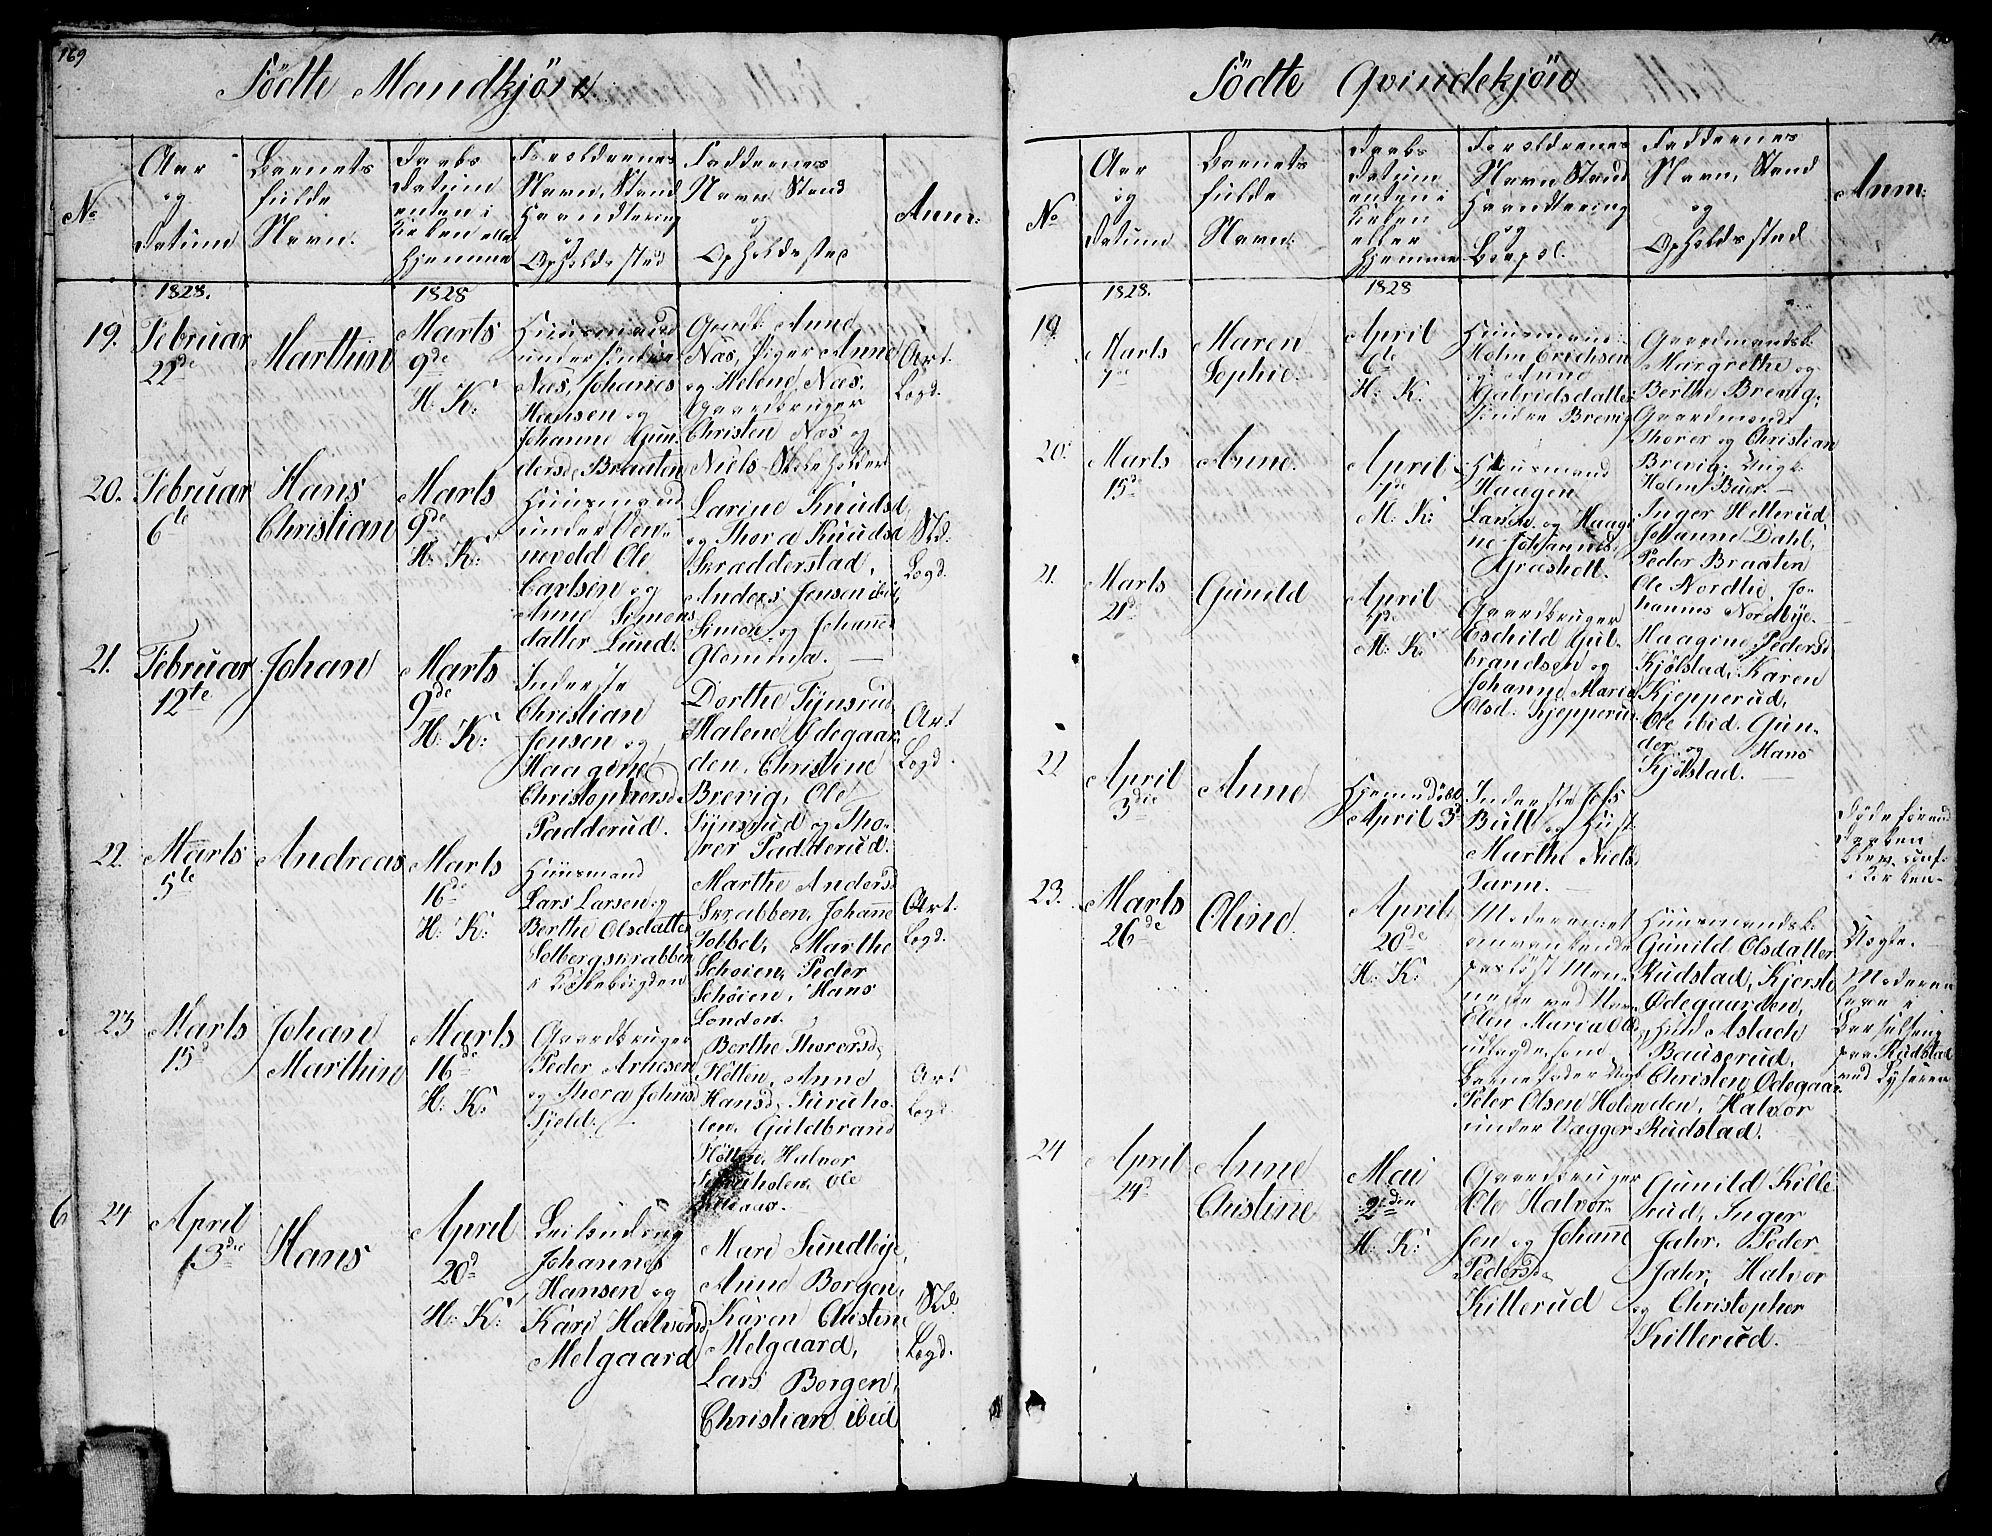 169
Födte Mandkjön
No
Aar
og
Datum
Barnets
fulde
Navn.
Daabs
Datum
enten i
Kirken eller
Hjemme
Forældrenes
Navn, Stand
Haandtering
og
Opholdssted
Faddernes
Navn Stand
og
Opholdssted
Anm:
1828.
1828
19.
Februar
22de
Marthin
Marts
9de
H: K:
Huusmand
under
Næs, Johanes
Hansen og
Johanne Gun-
dersd. Braaten
Gaardk. Anne
Næs, Piger Anne
og Helene Næs,
Gaardbruger
Christen Næs og
Niels Skoleholder
Art.
Legd.
20.
Februar
6te
Hans
Christian
Marts
9de
H: K:
Huusmand
under Ven-
nevold Ole
Carlsen og
Anne Simons
datter Lund.
Larine Knudsd.
og Thora Knudsd
Skrædderstad,
Anders Jensen ibid,
Simon og Johanes
Glomma.
Sld.
Legd.
21.
Februar
12te
Johan
Marts
9de
H: K:
Inderste
Christian
Jensen og
Haagine
Christophersd.
Padderud.
Dorthe Tynsrud
Malene Ødegaar-
den, Christine
Brevig, Ole
Tynsrud og Tho-
rer Padderud.
Art
Legd.
22.
Marts
5te
Andreas
Marts
16de
H: K:
Huusmand
Lars Larsen og
Berthe Olsdatter
Solbergskrabben
i Kiskebygden
Marthe Andersd
Skrabben, Johanne
Tobbel, Marthe
Schøien, Peder
Schøien, Hans
London.
Art.
Legd.
23
Marts
15d
Johan
Marthin
Marts
16de
H: K:
Gaardbruger
Peder Arnesen
og Thora Johnsd
Fjeld.
Berthe Thorersd.
Fløtten, Anne
Hansd. Furuho-
len, Guldbrand
Fløtten, Halvor
Furuholen, Ole
Art
Legd.
6
24
April
13de
Hans
April
20d
H: K:
Leilænding
Johannes
Hansen og
Kari Halvorsd
Melgaard
Mari Sundbye,
Anne Borgen,
Karen Christine
Melgaard,
Lars Borgen,
Christian ibid
Sld.
Legd.
Födte Qvindekjön
No
Aar
og
Datum
Barnets
fulde
Navn.
Daabs
Datum
enten i
Kirken
eller
Hjemme
Forældrenes
Navn Stand
Haandtering
og
Boepæl.
Faddernes
Navn, Stand
og
Opholdssted
Anm:
1828.
1828
19
Marts
7de
Maren
Sophie.
April
6te
H: K.
Huusmand
Holm Erichsen
og Anne
Gabrielsdatter
Søndre Brevig
Gaardmandsk.
Margrethe og
Berthe Brevig,
Gaardmænd
Thorer og Christian
Brevig, Ungk.
Holm Buer.
20.
Marts
15d
Anne.
April
7de
M: K:
Huusmand
Haagen
Larsen og Haagi-
ne Johannesd.
Græsholt.
Inger Hellerud,
Johanne Dahl,
Peder Braaten
Ole Nordlie, Jo-
hannes Nordbye.
21.
Marts
21d
Gunild
April
7de
M: K:
Gaardbruger
Eschild Gul-
brandsen og
Johanne Maria
Olsd. Kjepperud
Haagine Pedersd
Kjølstad, Karen
Kjepperud,
Ole ibid. Gun-
der og Hans
Kjølstad.
22
April
3die
Anne
Hjemmedøbt
April 3d
Inderste Johs
Bull og Hust.
Marthe Niels
Tarm.
Døde forend
Daaben
blev
i Kirken
23.
Marts
26de
Oline.
April
20de
H: K:
Elen Maria Ols
udlagde som
Barnefader Ungk
Peder Olsen Holen
under Vagger
Huusmandsk.
Gunild Olsdatter
Rudstad, Kjersti
Ødegaarden,
Aslach
Bauserud,
Christen Ødegaar-
den, Halvor
Rudstad.
Uægte.
Moderen
Barselseng
paa Rudstad
ved Lyseren
24
April
24d
Anne
Christine
Mai
2den
H: K:
Gaardbruger
Ole Halvor-
sen og Johanne
Pedersd.
Killerud
Gunild Kille-
rud, Inger
Jahr, Peder
Jahr, Halvor
og Christopher
Killerud.